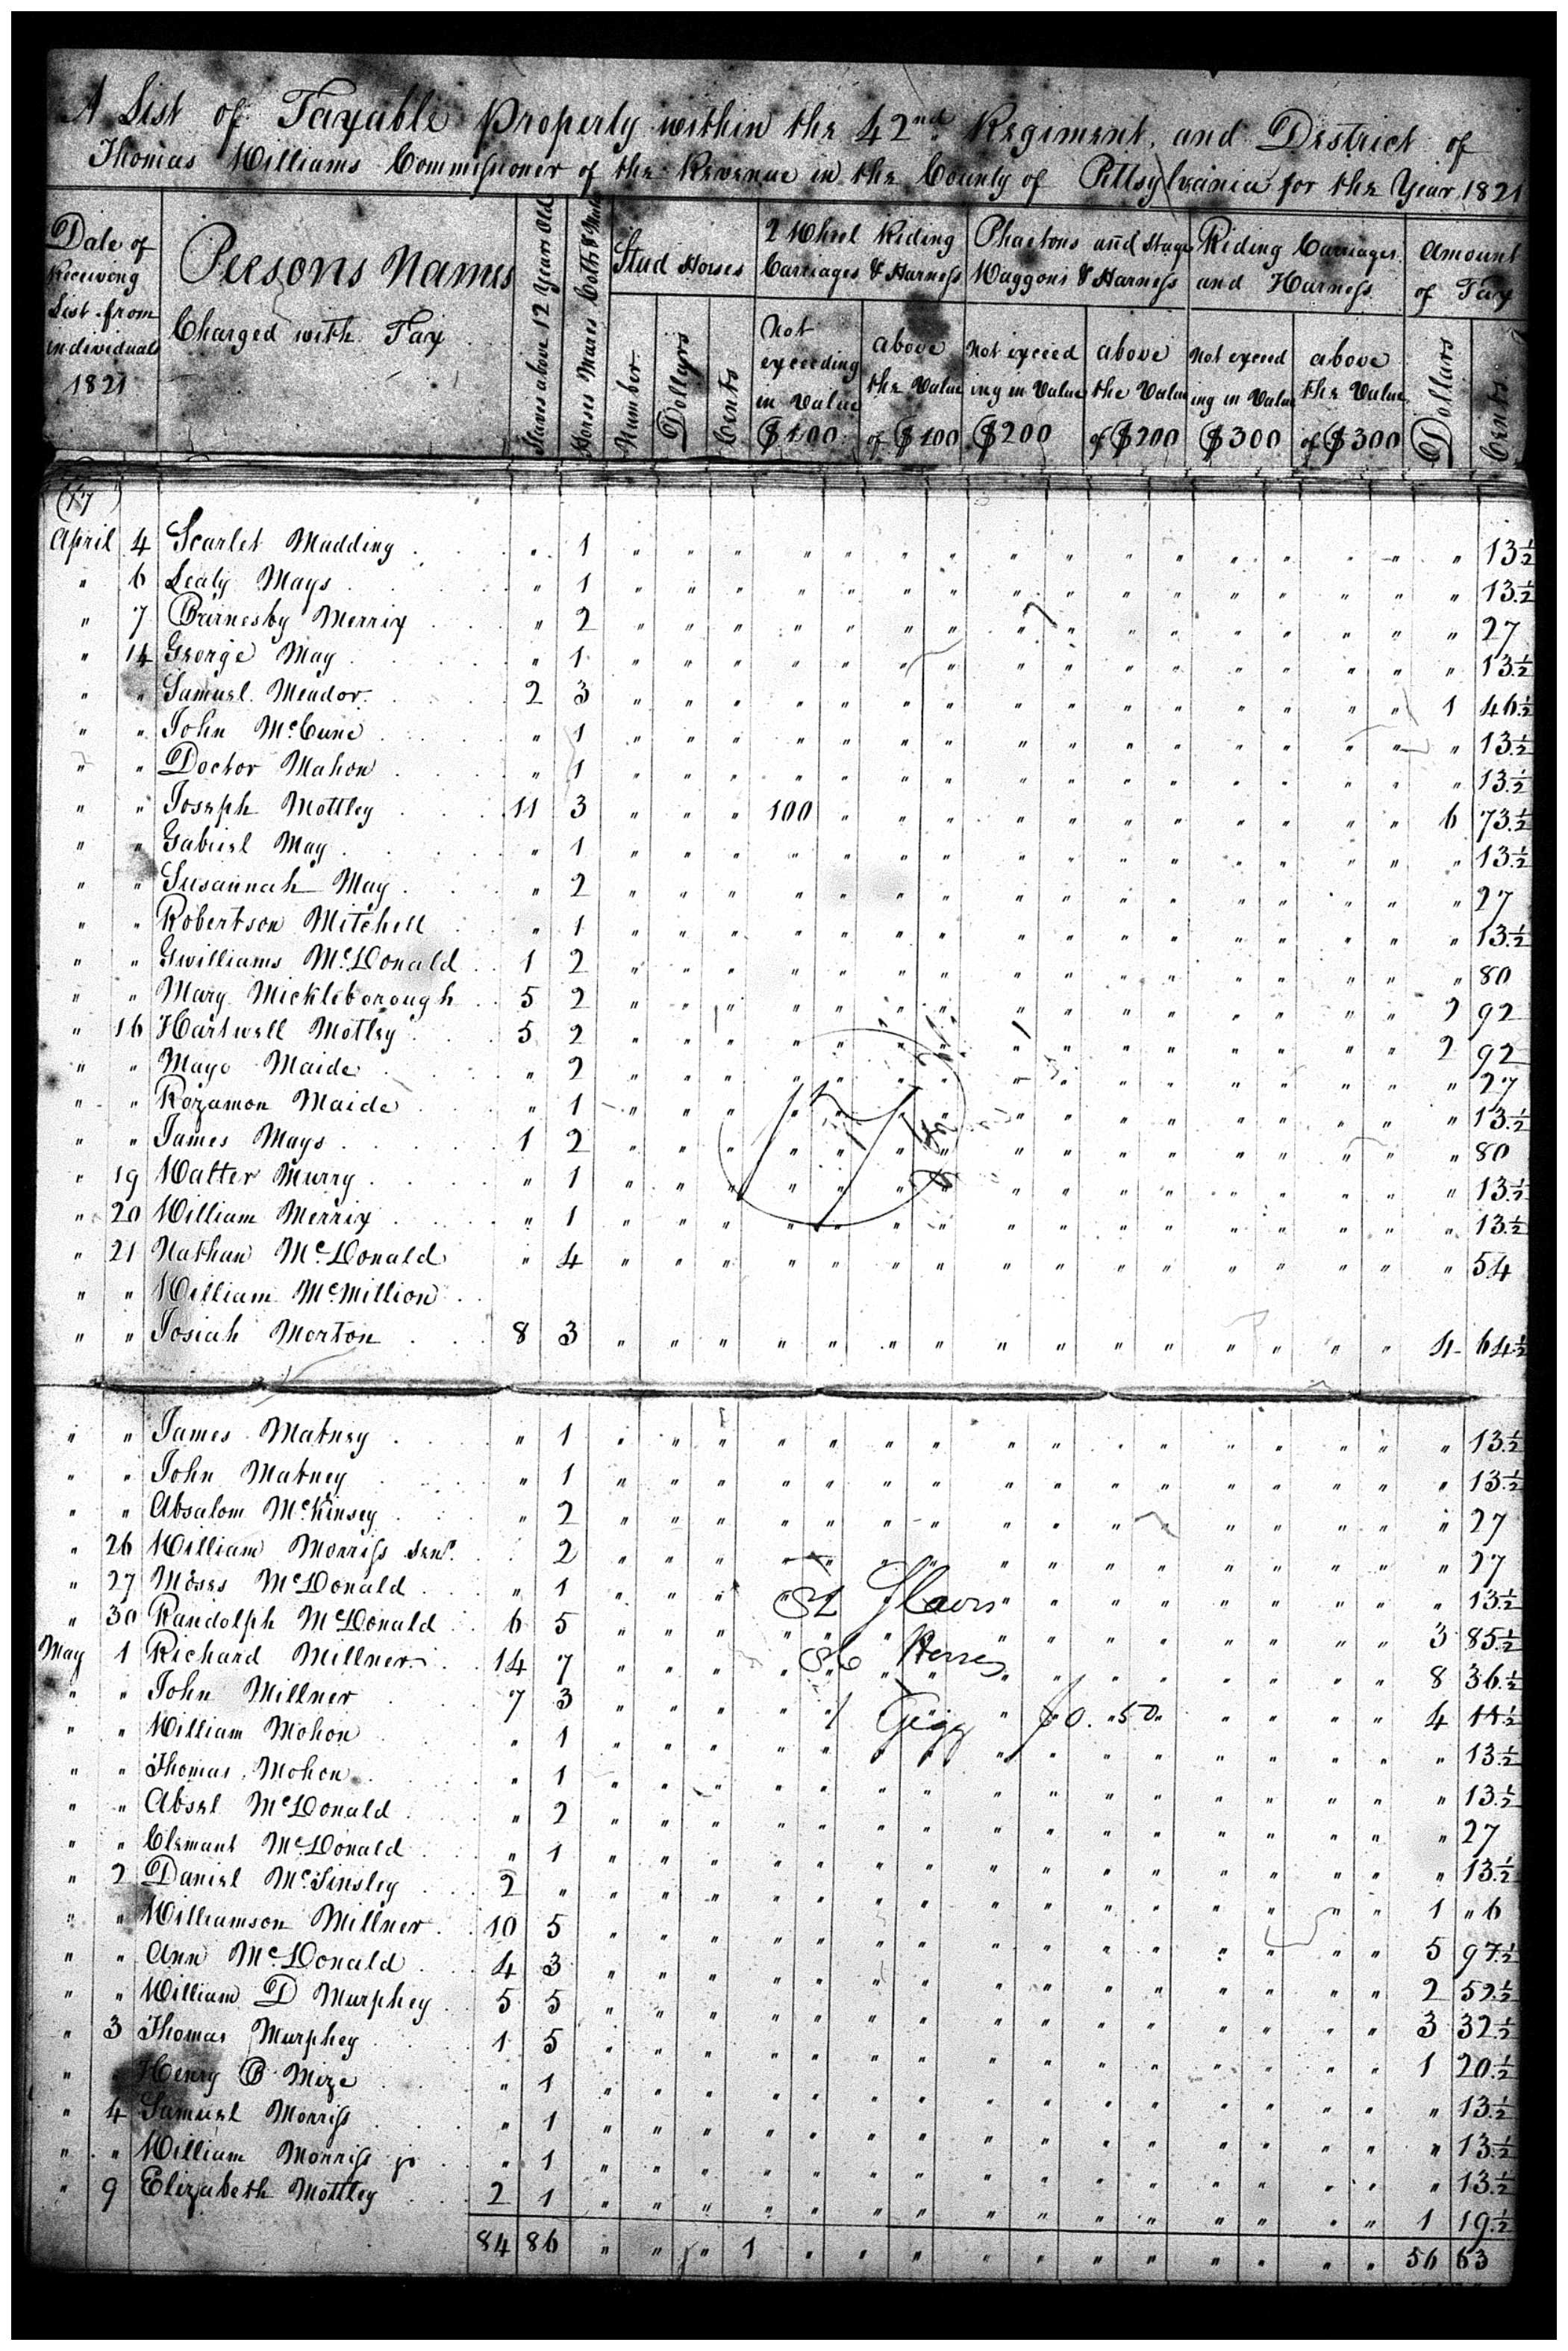 A List of Taxable Property within the 42nd Regiment, and District of
Thomas Williams Commissioner of the Revenue in the County of Pittsylvania for the Year 1821
Date of Receiving List from individuals 1821
Persons Names Charged with Tax
Slaves above 12 Years Old
Horses Mares Colts & Mules
Stud Horses
Number
Dollars
Cents
2 Wheel Riding Carriages & Harness
Not exceeding in Value $100
above the Value of $100
Phaetons and Stage Waggons & Harness
Not exceeding in Value $200
above the Value of $200
Riding Carriages and Harness
Not exceeding in Value $300
above the Value of $300
Amount of Tax
Dollars
Cents
(17)
April 4 Scarlet Madding " 1 " 13½
" 6 Lealy Mays " 1 " 13½
" 7 Barnesby Merrix " 2 " 27
" 14 George May " 1 " 13½
" " Samuel Meador 2 3 1 46½
" " John McCune " 1 " 13½
" " Doctor Mahon " 1 " 13½
" " Joseph Mottley 11 3 100 6 73½
" " Gabriel May " 1 " 13½
" " Susannah May " 2 " 27
" " Robertson Mitchell " 1 " 13½
" " Gwilliams McDonald 1 2 " 80
" " Mary Mickleborough 5 2 2 92
" 16 Hartwell Motley 5 2 2 92
" " Mayo Maide " 2 " 27
" " Rozamon Maide " 1 " 13½
" " James Mays 1 2 " 80
" 19 Walter Murry " 1 " 13½
" 20 William Merrix " 1 " 13½
" 21 Nathan McDonald " 4 " 54
" " William McMillion
" " Josiah Morton 8 3 4 64½
" " James Matney " 1 " 13½
" " John Matney " 1 " 13½
" " Absalom McKinsey " 2 " 27
" 26 William Morriss Senr. 2 " 27
" 27 Moses McDonald " 1 " 13½
" 30 Randolph McDonald 6 5 3 85½
May 1 Richard Millner 14 7 8 36½
" " John Millner 7 3 4 11½
" " William Mohon " 1 " 13½
" " Thomas Mohon " 1 " 13½
" " Absel McDonald " 2 " 27
" " Clemant McDonald " 1 " 13½
" 2 Daniel McTinsley 2 " 1 "6
" " Williamson Millner 10 5 5 97½
" " Ann McDonald 4 3 2 52½
" " William D Murphey 5 5 3 32½
" 3 Thomas Murphey 1 5 1 20½
" " Henry B Mize " 1 " 13½
" 4 Samuel Morriss " 1 " 13½
" " William Morriss jr " 1 " 13½
" 9 Elizabeth Mottley 2 1 1 19½
84 86 " " " 1 " " " " " " 56 63
Slaves
86 Horses
1 Gigg $0.50